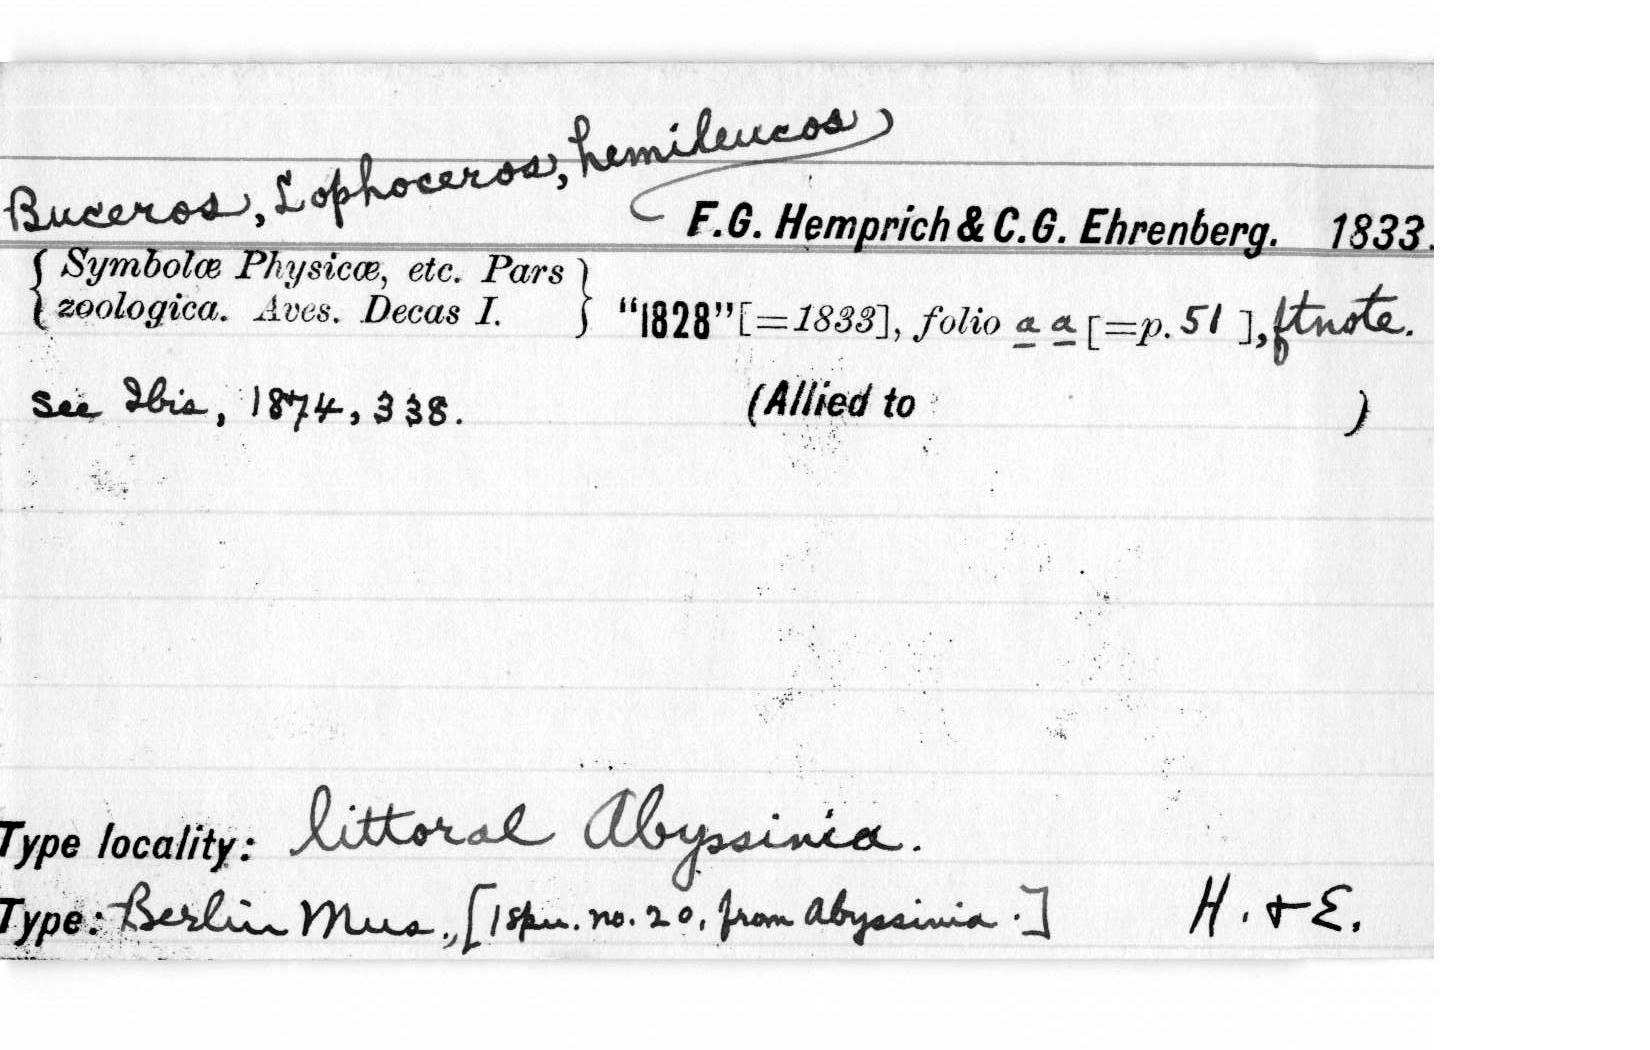 Buceros, Lophoceros, hemileucos
F.G. Hemprich & C.G. Ehrenberg. 1833.
{ Symbolæ Physicæ, etc. Pars
zoologica. Aves. Decas I. } "1828" [=1833], folio a a [=p. 51 ], ftnote.
See Ibis, 1874, 338. (Allied to )
Type locality: littoral Abyssinia.
Type: Berlin Mus., [1 spn. no. 20, from Abyssinia.] H. & E.